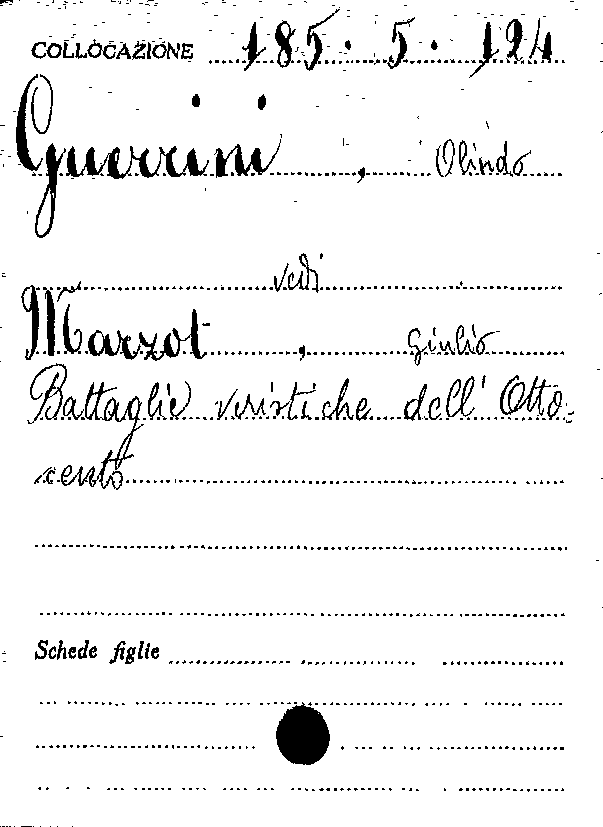 COLLOCAZIONE 185.5.124
Guerrini, Olindo
vedi
Marzot, Giulio
Battaglie veristiche dell'Otto-
cento
Schede figlie